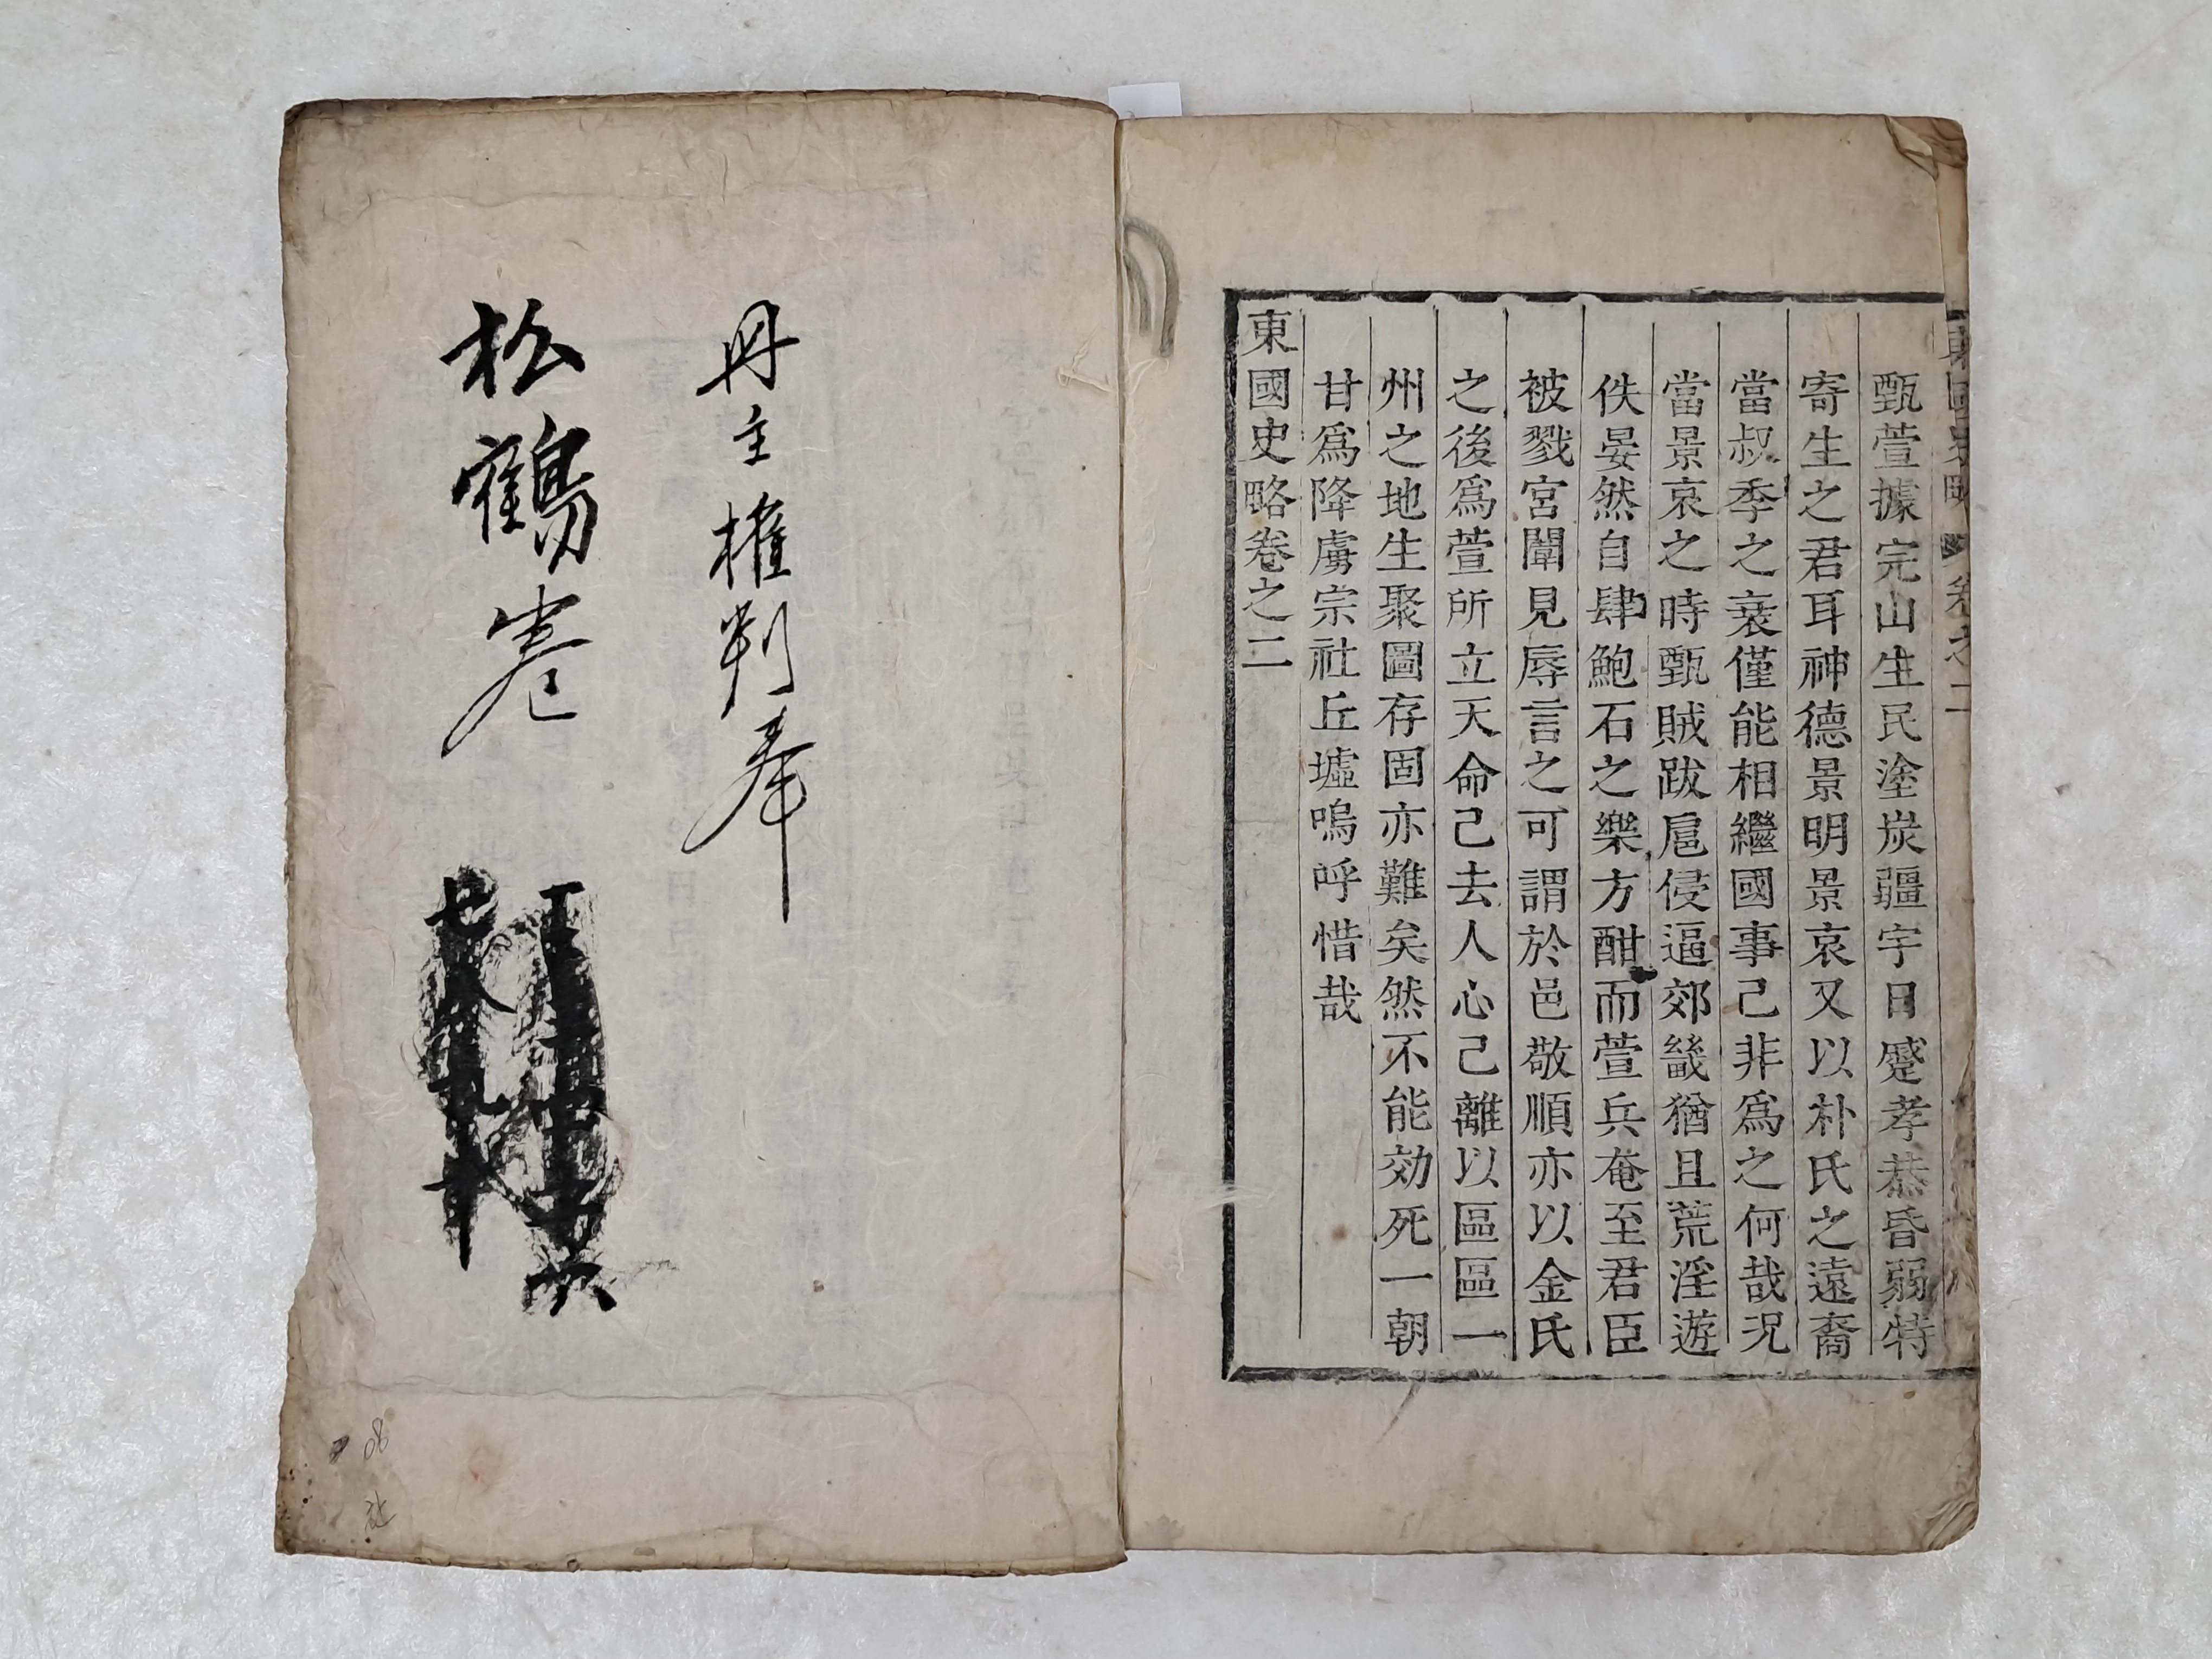 東國史略 卷之二
甄萱據完山生民塗炭疆宇日蹙孝恭昏弱特
寄生之君耳神德景明景哀又以朴氏之遠裔
當叔季之衰僅能相繼國事己非爲之何哉况
當景哀之時甄賊跋扈侵逼郊畿猶且荒淫遊
佚晏然自肆鮑石之樂方酣而萱兵奄至君臣
被戮宮闈見辱言之可謂於邑敬順亦以金氏
之後爲萱所立天命己去人心己離以區區一
州之地生聚圖存固亦難矣然不能効死一朝
甘爲降虜宗社丘墟嗚呼惜哉
東國史略卷之二
册主權判奉
松鶴